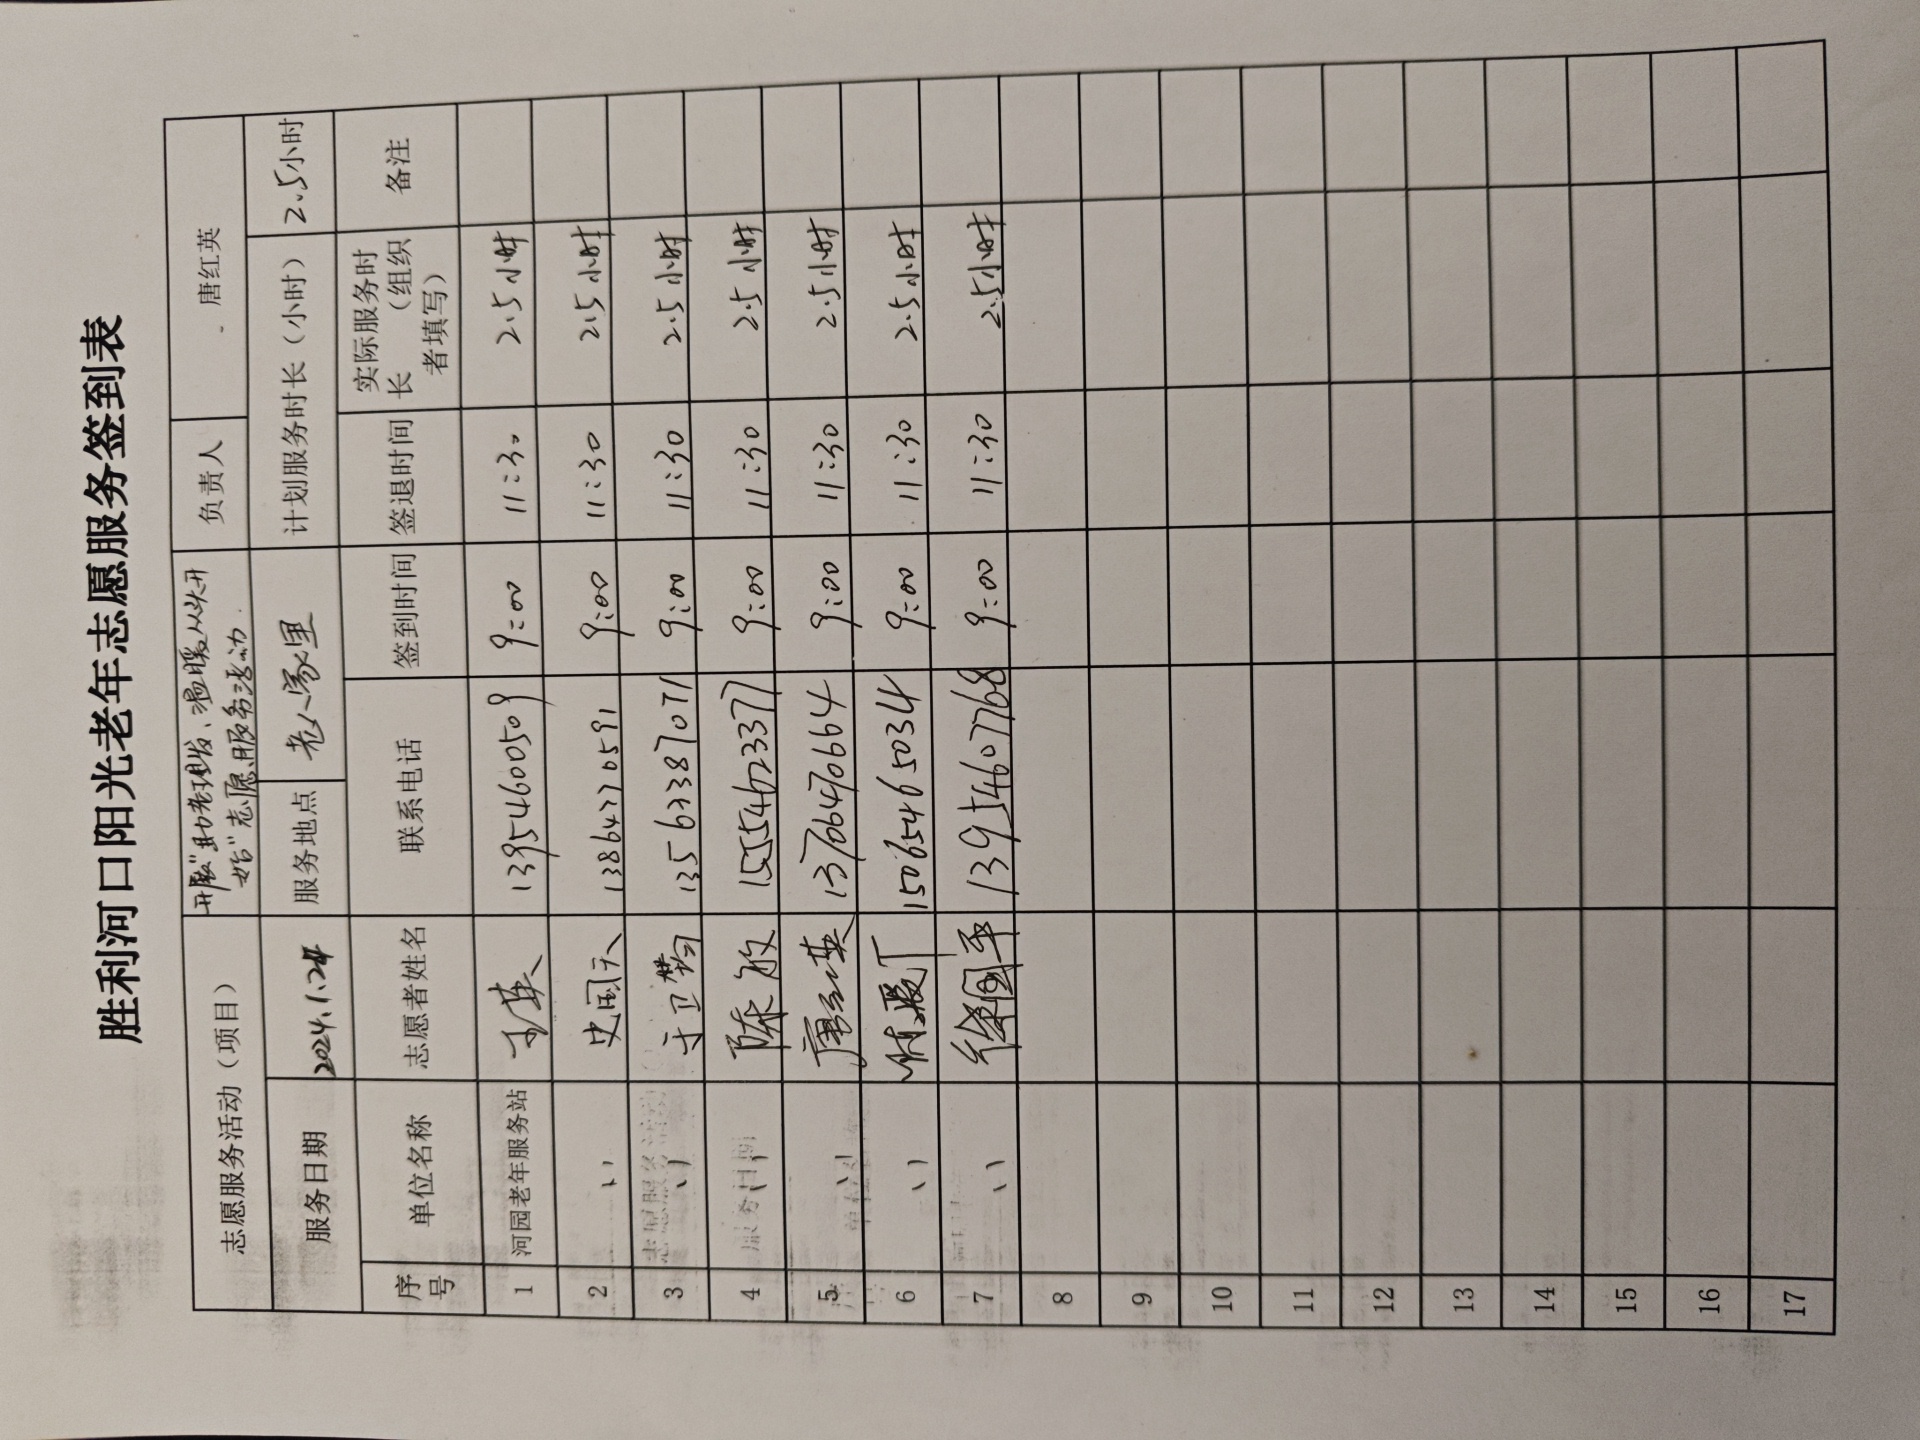 胜利河口阳光老年志愿服务签到表
志愿服务活动（项目） 开展"助老理发、温暖从头开 负责人 唐红英
始"志愿服务活动.
服务日期 2024.1.24 服务地点 老人家里 计划服务时长（小时） 2.5小时
序号 单位名称 志愿者姓名 联系电话 签到时间 签退时间 实际服务时长（组织者填写） 备注
1 河园老年服务站 13954600509 9:00 11:30 2.5小时
2 〃 史国天 138647270591 9:00 11:30 2.5小时
3 〃 于卫 9:00 11:30 2.5小时
4 〃 陈敏 15554623377 9:00 11:30 2.5小时
5 〃 唐红英 13706470664 9:00 11:30 2.5小时
6 〃 15065465034 9:00 11:30 2.5小时
7 〃 徐国平 13954607768 9:00 11:30 2.5小时
8
9
10
11
12
13
14
15
16
17